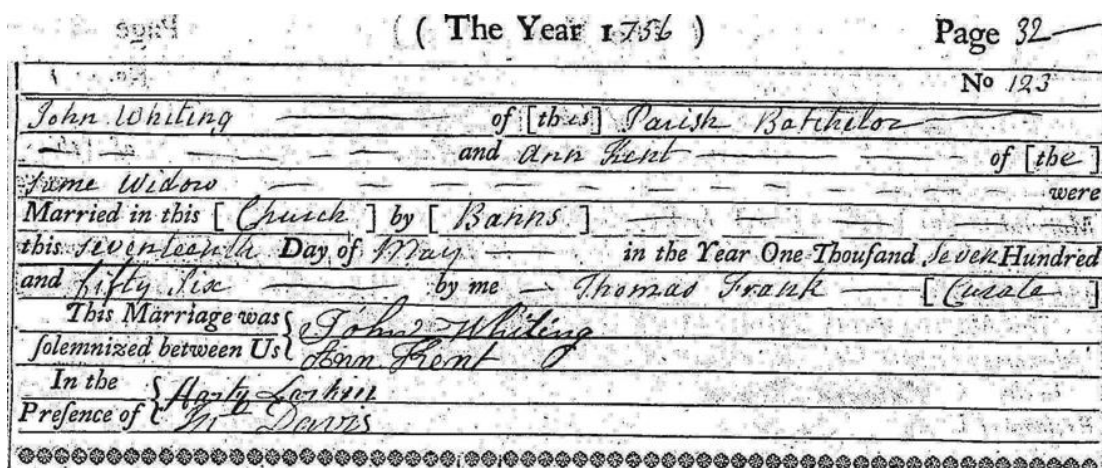 ( The Year 1756 ) Page 32
No 123
John Whiting of [this] Parish Batchelor
and Ann Kent of [the]
same Widow were
Married in this [Church] by [Banns]
this seventeenth Day of May in the Year One Thouſand Seven Hundred
and fifty Six by me Thomas Frank [Curate]
This Marriage was John Whiting
ſolemnized between Us Ann Kent
In the Larkin
Preſence of Davis